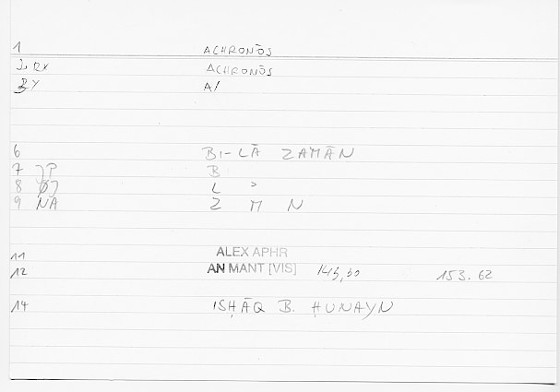 1 ACHRONŌS
2 RX ACHRONŌS
3 Y A/
6 BI-LĀ ZAMĀN
7 JP B
8 ØJ L ɔ
9 NA Z M N
11 ALEX APHR
12 AN MANT [VIS] 145,30 153.62
14 ISḤĀQ B. ḤUNAYN